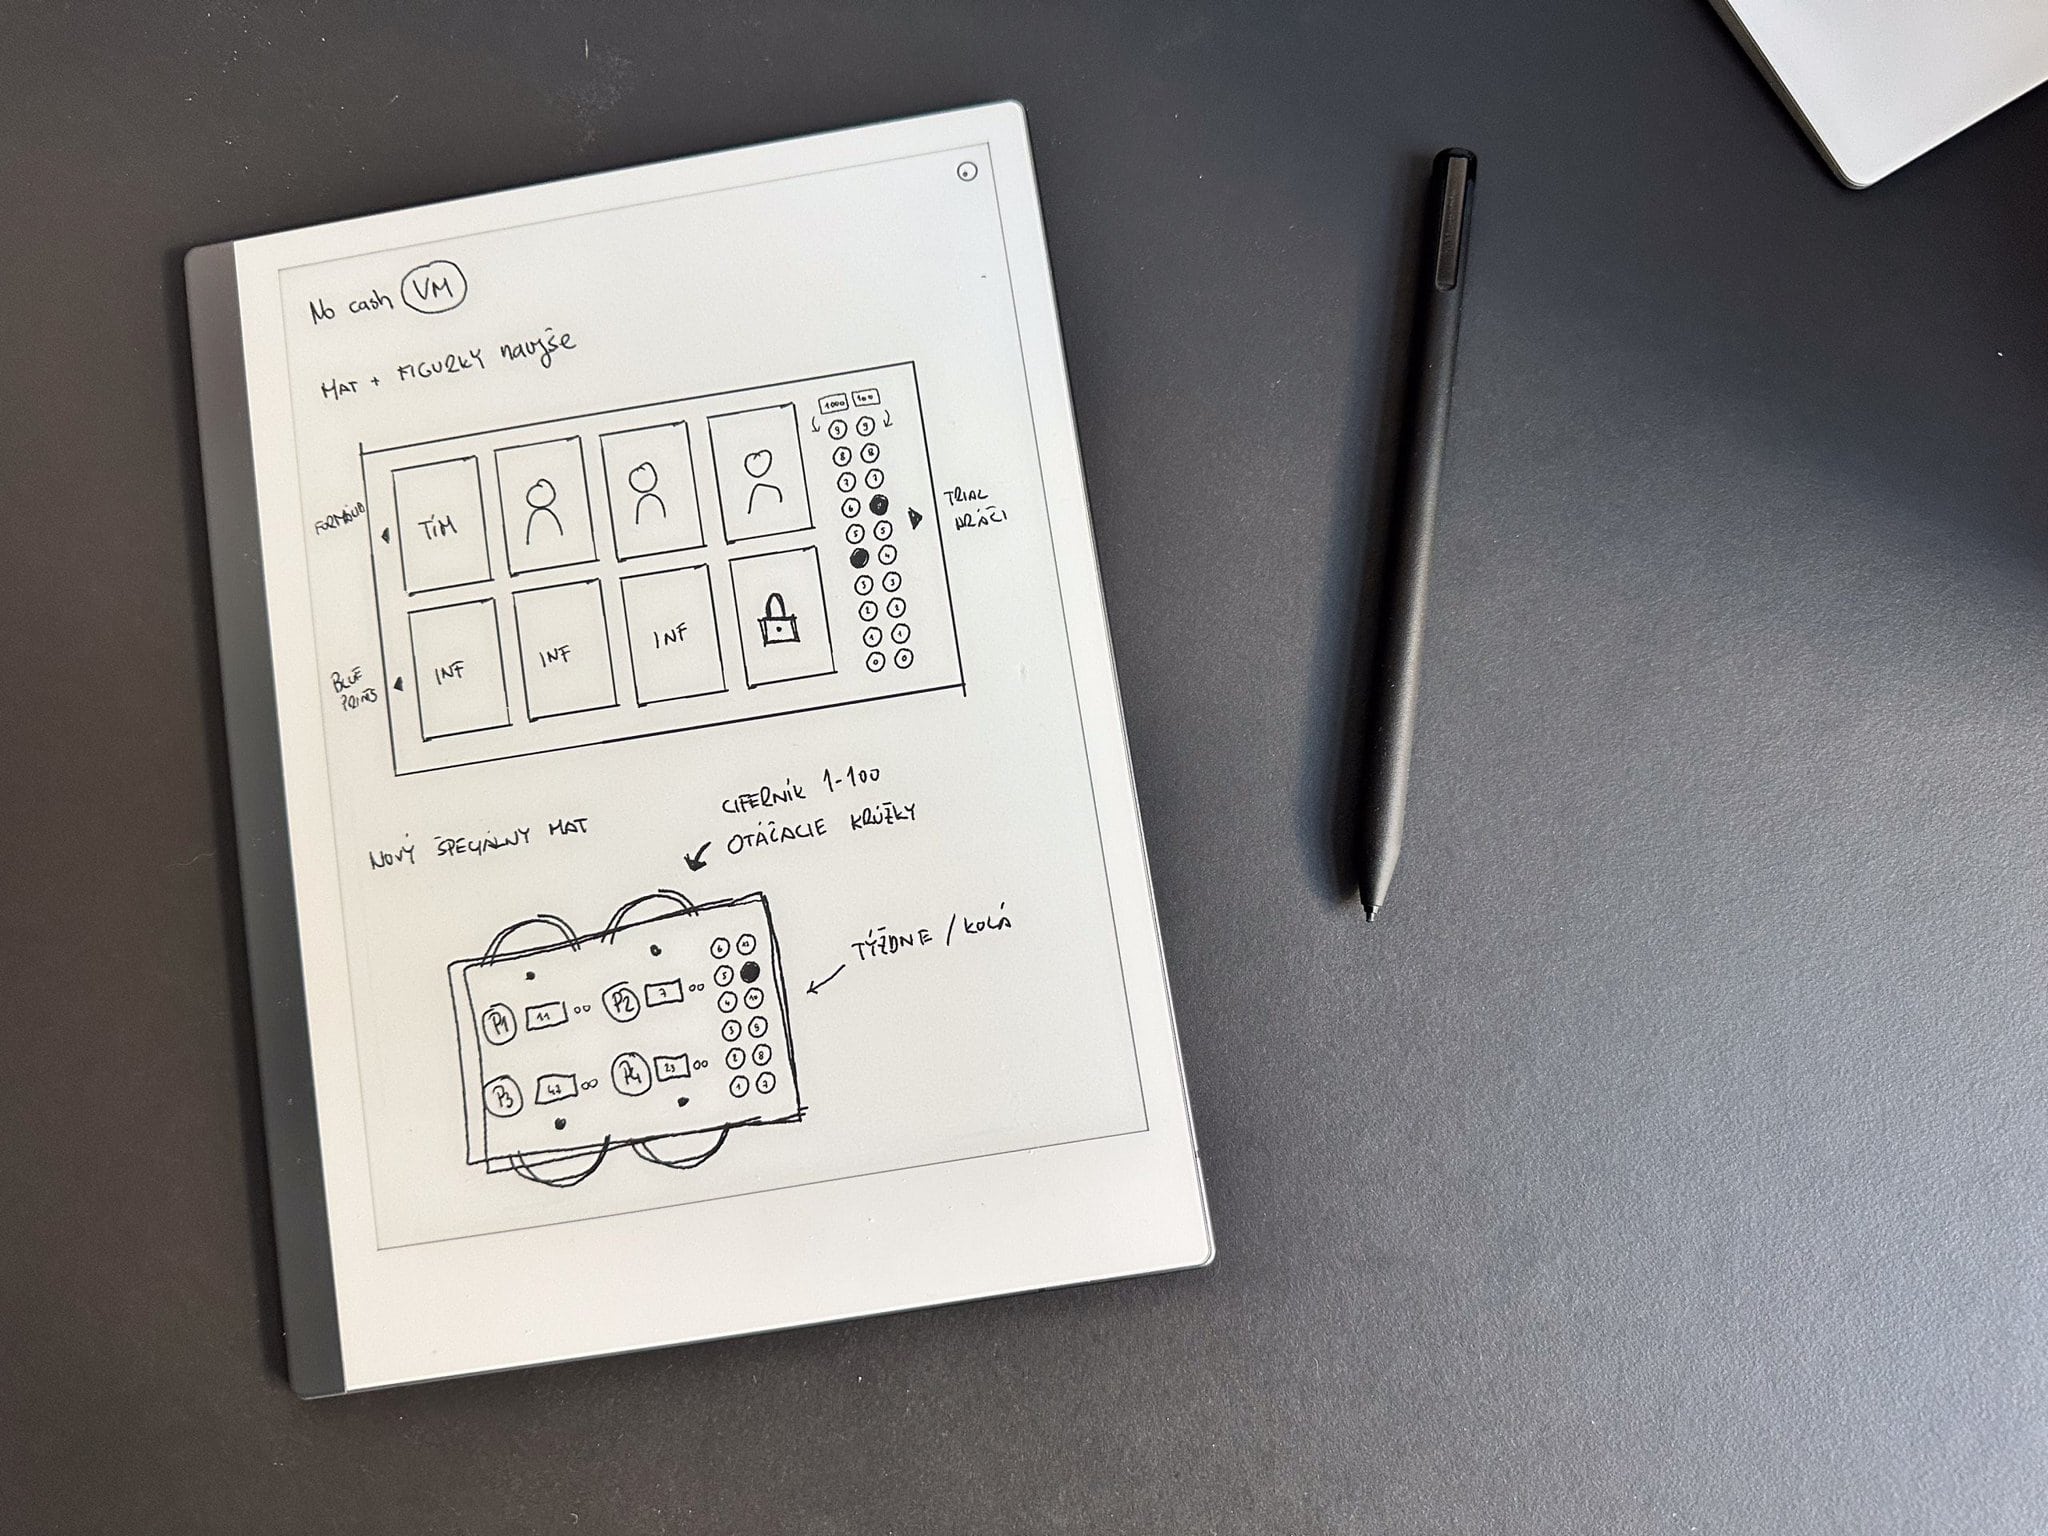 No cash VM
MAT + FIGURKY navyše
1000 100
9 9
8 8
7 7
6
5 5
4
3 3
2 2
1 1
0 0
TÍM
INF INF INF
TRIAL
HRÁČI
BLUE
PRINTS
NOVÝ ŠPECIÁLNY MAT
CIFERNÍK 1-100
OTÁČACIE KRÚŽKY
TÝŽDNE / KOLÁ
P1 11 P2 7
P3 47 P4 23
6 12
5
4 10
3 9
2 8
1 7